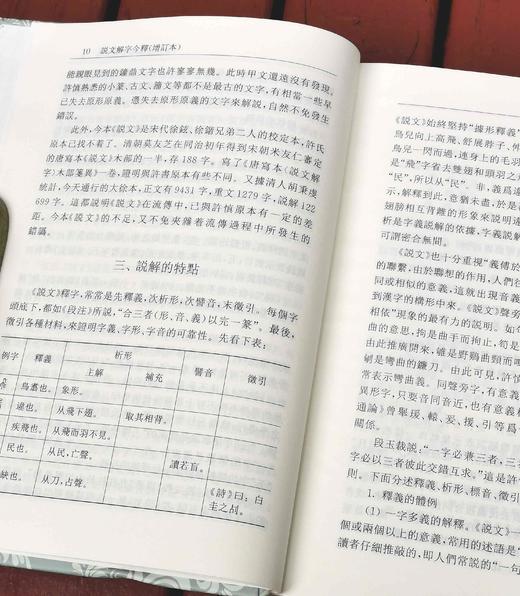 10 説文解字今釋(增訂本)
他親眼見到的鐘鼎文字也許寥寥無幾。此時甲文還遠沒有發現。
許慎熟悉的小篆、古文、籀文等都不是最古的文字,有相當一些早
已失去原形原義。憑失去原形原義的文字來解説,自然不免發生
錯誤。
此外,今本《説文》是宋代徐鉉、徐鍇兄弟二人的校定本,許氏
原本已找不着了。清朝莫友芝在同治初年得到宋朝米友仁審定
的唐寫本《説文》木部的一半,存188字。寫了《唐寫本〈説文解
字〉木部箋異》一卷,證明與許書原本有些不同。又據清人胡秉虔
統計,今天通行的大徐本,正文有9431字,重文1279字,解説122
699字。這都説明《説文》在流傳中,已與許慎原本有一定的差
距。今本《説文》的不足,又不免夾雜着流傳過程中所發生的
錯譌。
三、説解的特點
《説文》釋字,常常是先釋義,次析形,次譬音,末徵引。每個字
頭底下,都如《段注》所説,“合三者(形、音、義)以完一篆”。最後,
徵引各種材料,來證明字義、字形、字音的可靠性。先看下表:
例字 釋義 析形 譬音 徵引
主解 補充
鳥翥也。 象形。
違也。 从飛下翄。 取其相背。
疾飛也。 从飛而羽不見。
民也。 从民,亡聲。 讀若盲。
缺也。 从刀,占聲。 《詩》曰:白
圭之㓠。
《説文》始終堅持“據形釋義
鳥兒向上高飛、舒展脖子、伸
閃閃而過,連身上的毛羽
是“飛”字省去雙翅和頭羽之
“民”,所以从“民”。非,義爲違
示,解釋到此,意猶未盡,於是
翅膀相互背離的形象來説明違
析是字義説解的依據,字義説
可謂密合無間。
《説文》也十分重視“義傳於
的聯繫,由於聯想的作用,人們往
同或相似的意義,這就出現音義
到漢字的構形中來。《説文》聲旁
相依”現象的最有力的説明。如
曲的意思,拘是曲手而拘止,笱
由此推廣開來,雊是野鷄曲頸而
刏是彎曲的鐮刀。由此可見,許
常表示彎曲義。同聲旁字,有意
異形字,只要音同音近,也有意義
通論》曾舉瑗、轅、爰、援、引等爲
關係。
段玉裁説:“一字必兼三者,三
字必以三者彼此交錯互求。”這是許
則。下面分述釋義、析形、標音、徵引
1. 釋義的體例
(1) 一字多義的解釋。《説文》一
個或兩個以上的意義,常用的述語是“
讀者仔細推敲的,即人們常説的“一句